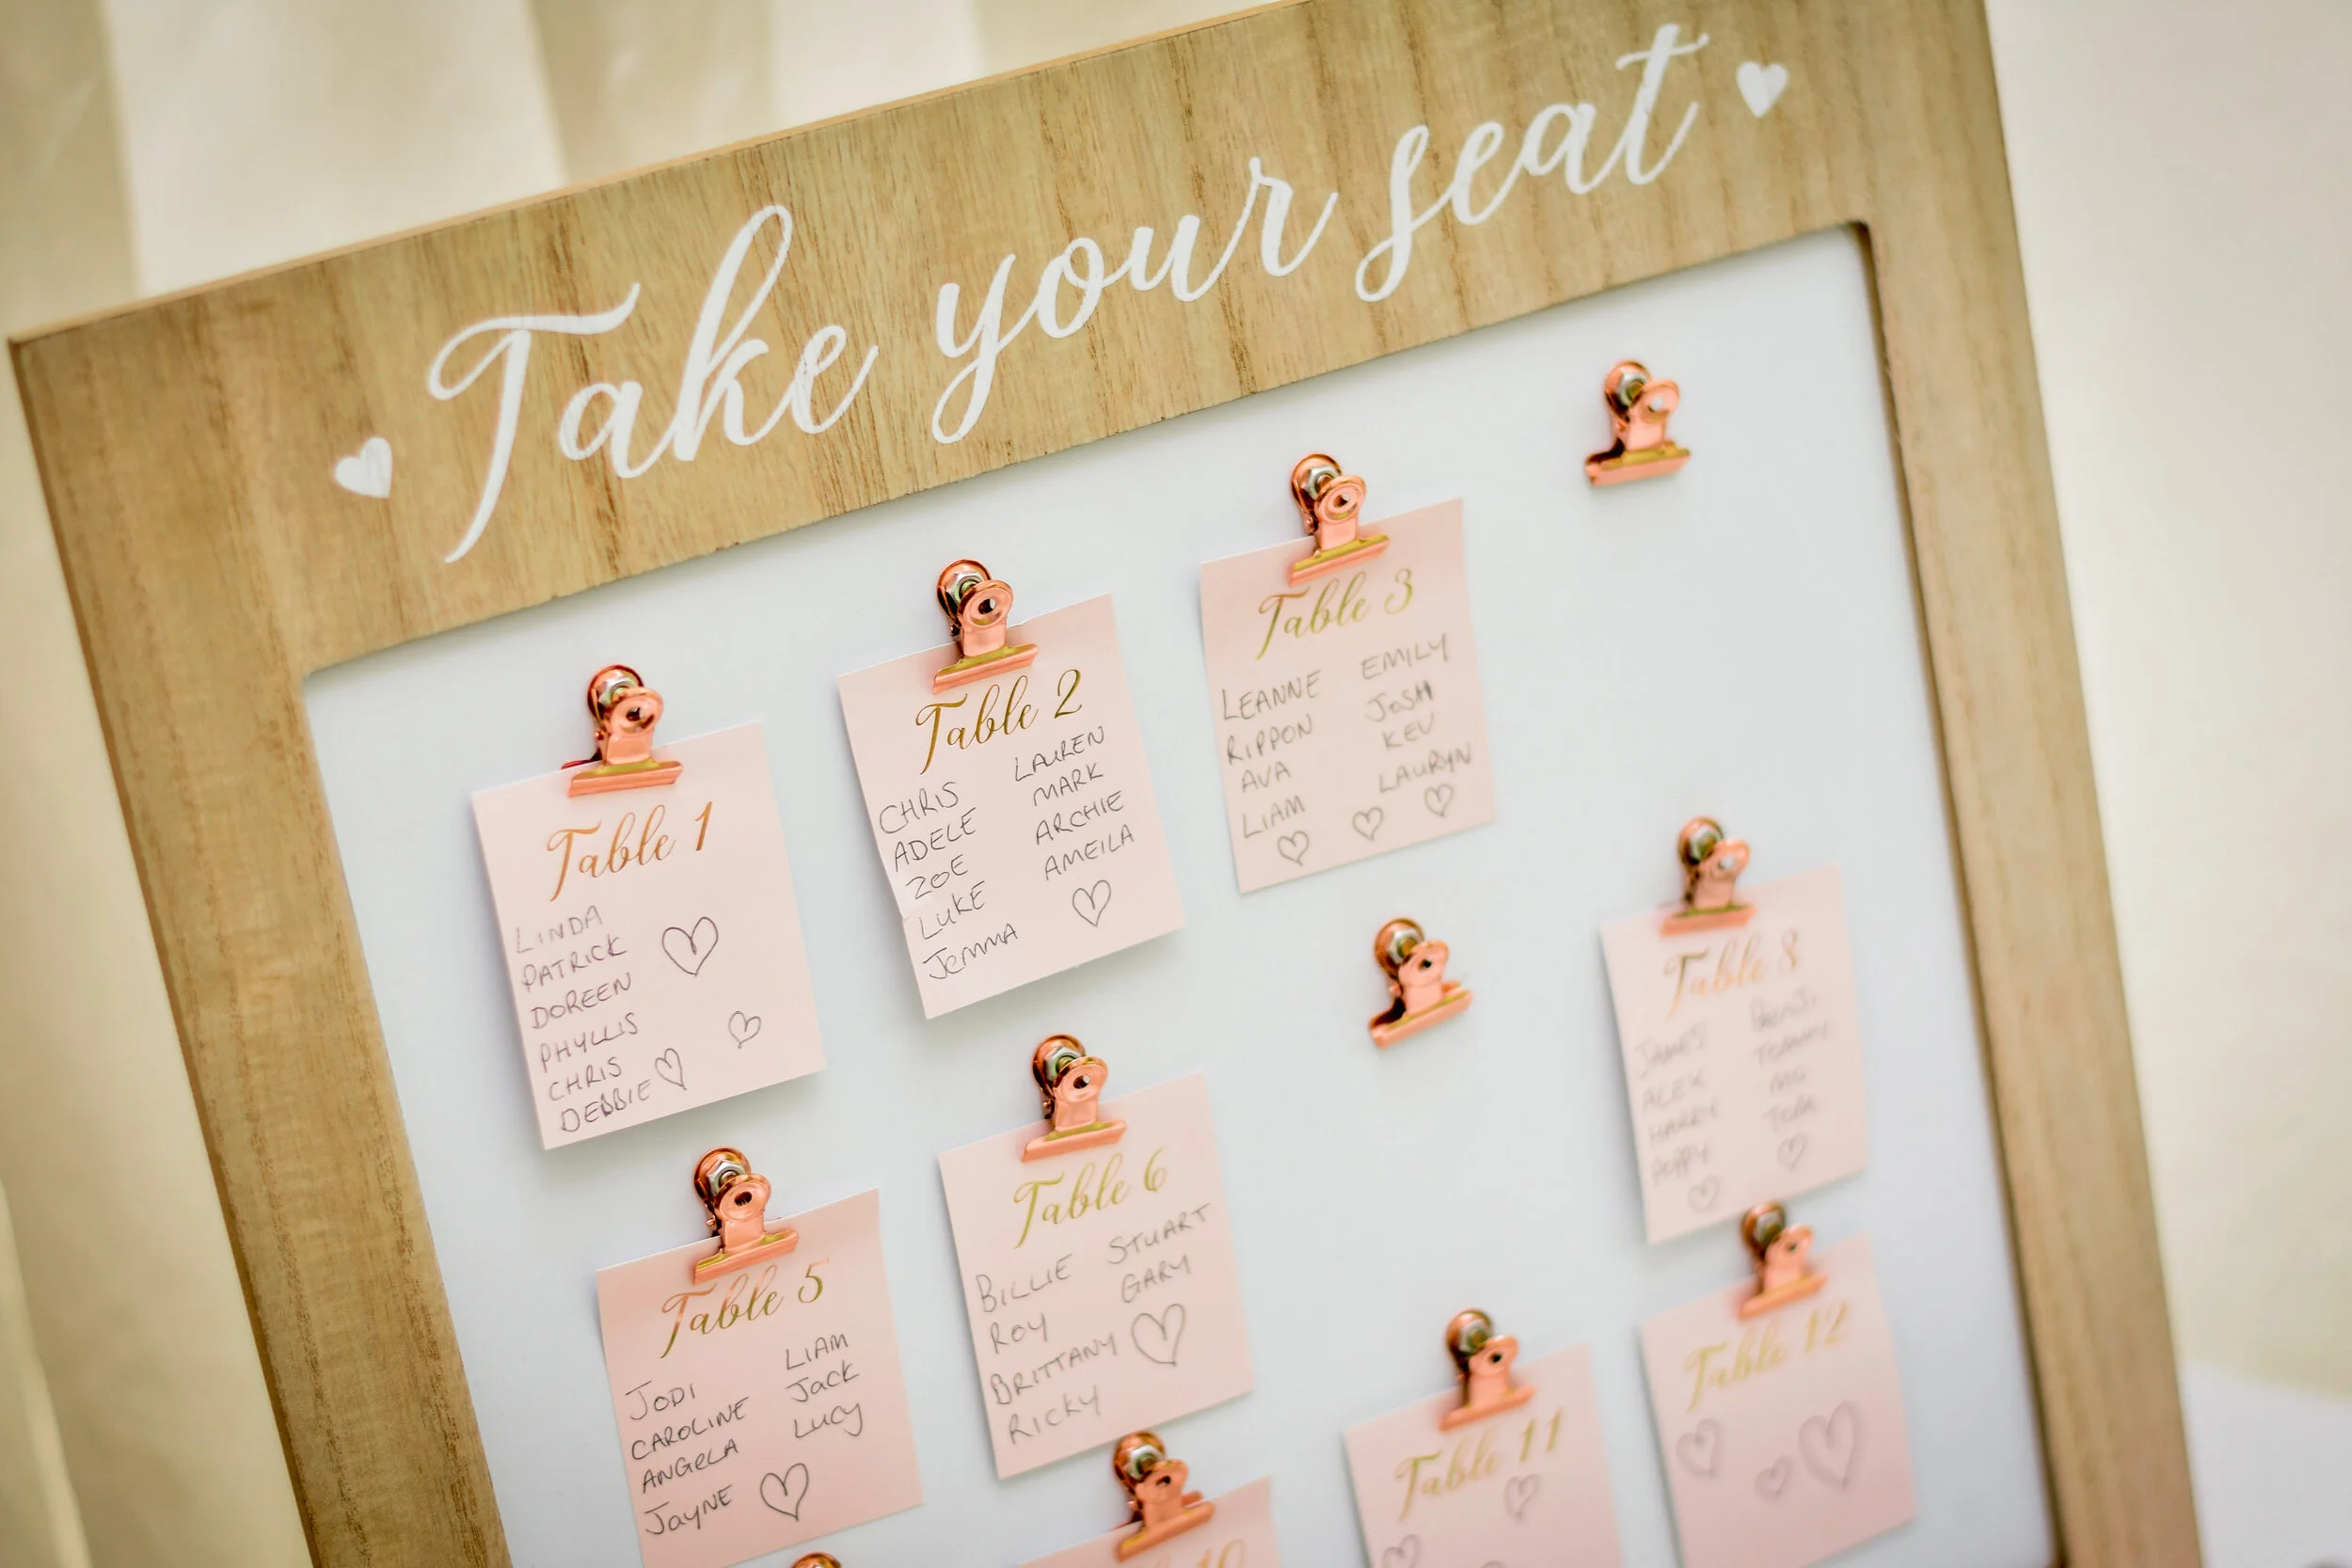 Take your seat
Table 1
LINDA
PATRICK
DOREEN
PHYLLIS
CHRIS
DEBBIE
Table 2
CHRIS
ADELE
ZOE
LUKE
Jemma
LAUREN
MARK
ARCHIE
AMEILA
Table 3
LEANNE
RIPPON
AVA
LIAM
EMILY
JOSH
KEV
LAURYN
Table 5
JODI
CAROLINE
ANGELA
Jayne
LIAM
Jack
Lucy
Table 6
BILLIE
ROY
BRITTANY
RICKY
STUART
GARY
Table 8
JAMES
ALEX
HARRY
POPPY
TOMMY
TOM
10
Table 11
Table 12